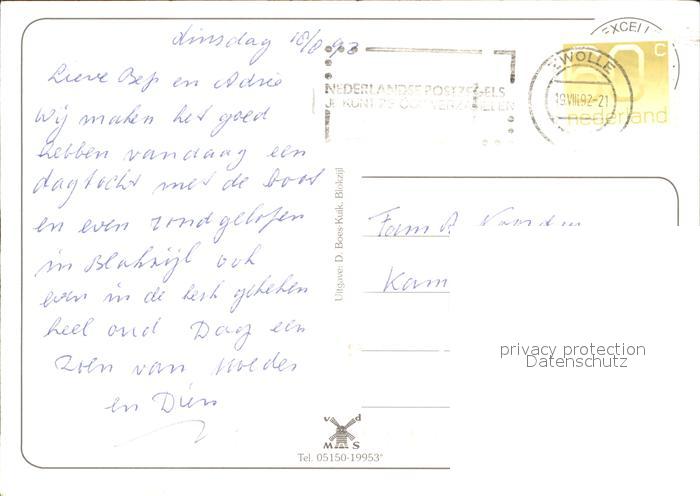 dinsdag 18/8 92
Lieve Bep en Adrie
Wij maken het goed
hebben vandaag een
dagtocht met de boot
en even rondgelopen
in Blokzijl ook
even in de kerk gekeken
heel oud Dag een
zoen van Moeder
en Dien
NEDERLANDSE POSTZEGELS
JE KUNT ZE OOK VERZAMELEN
EXCELL
ZWOLLE
19.VIII.92-21
60 c
nederland
Uitgave: D. Boes-Kuik, Blokzijl
Fam
Kam
privacy protection
Datenschutz
v d
M S
Tel. 05150-19953*